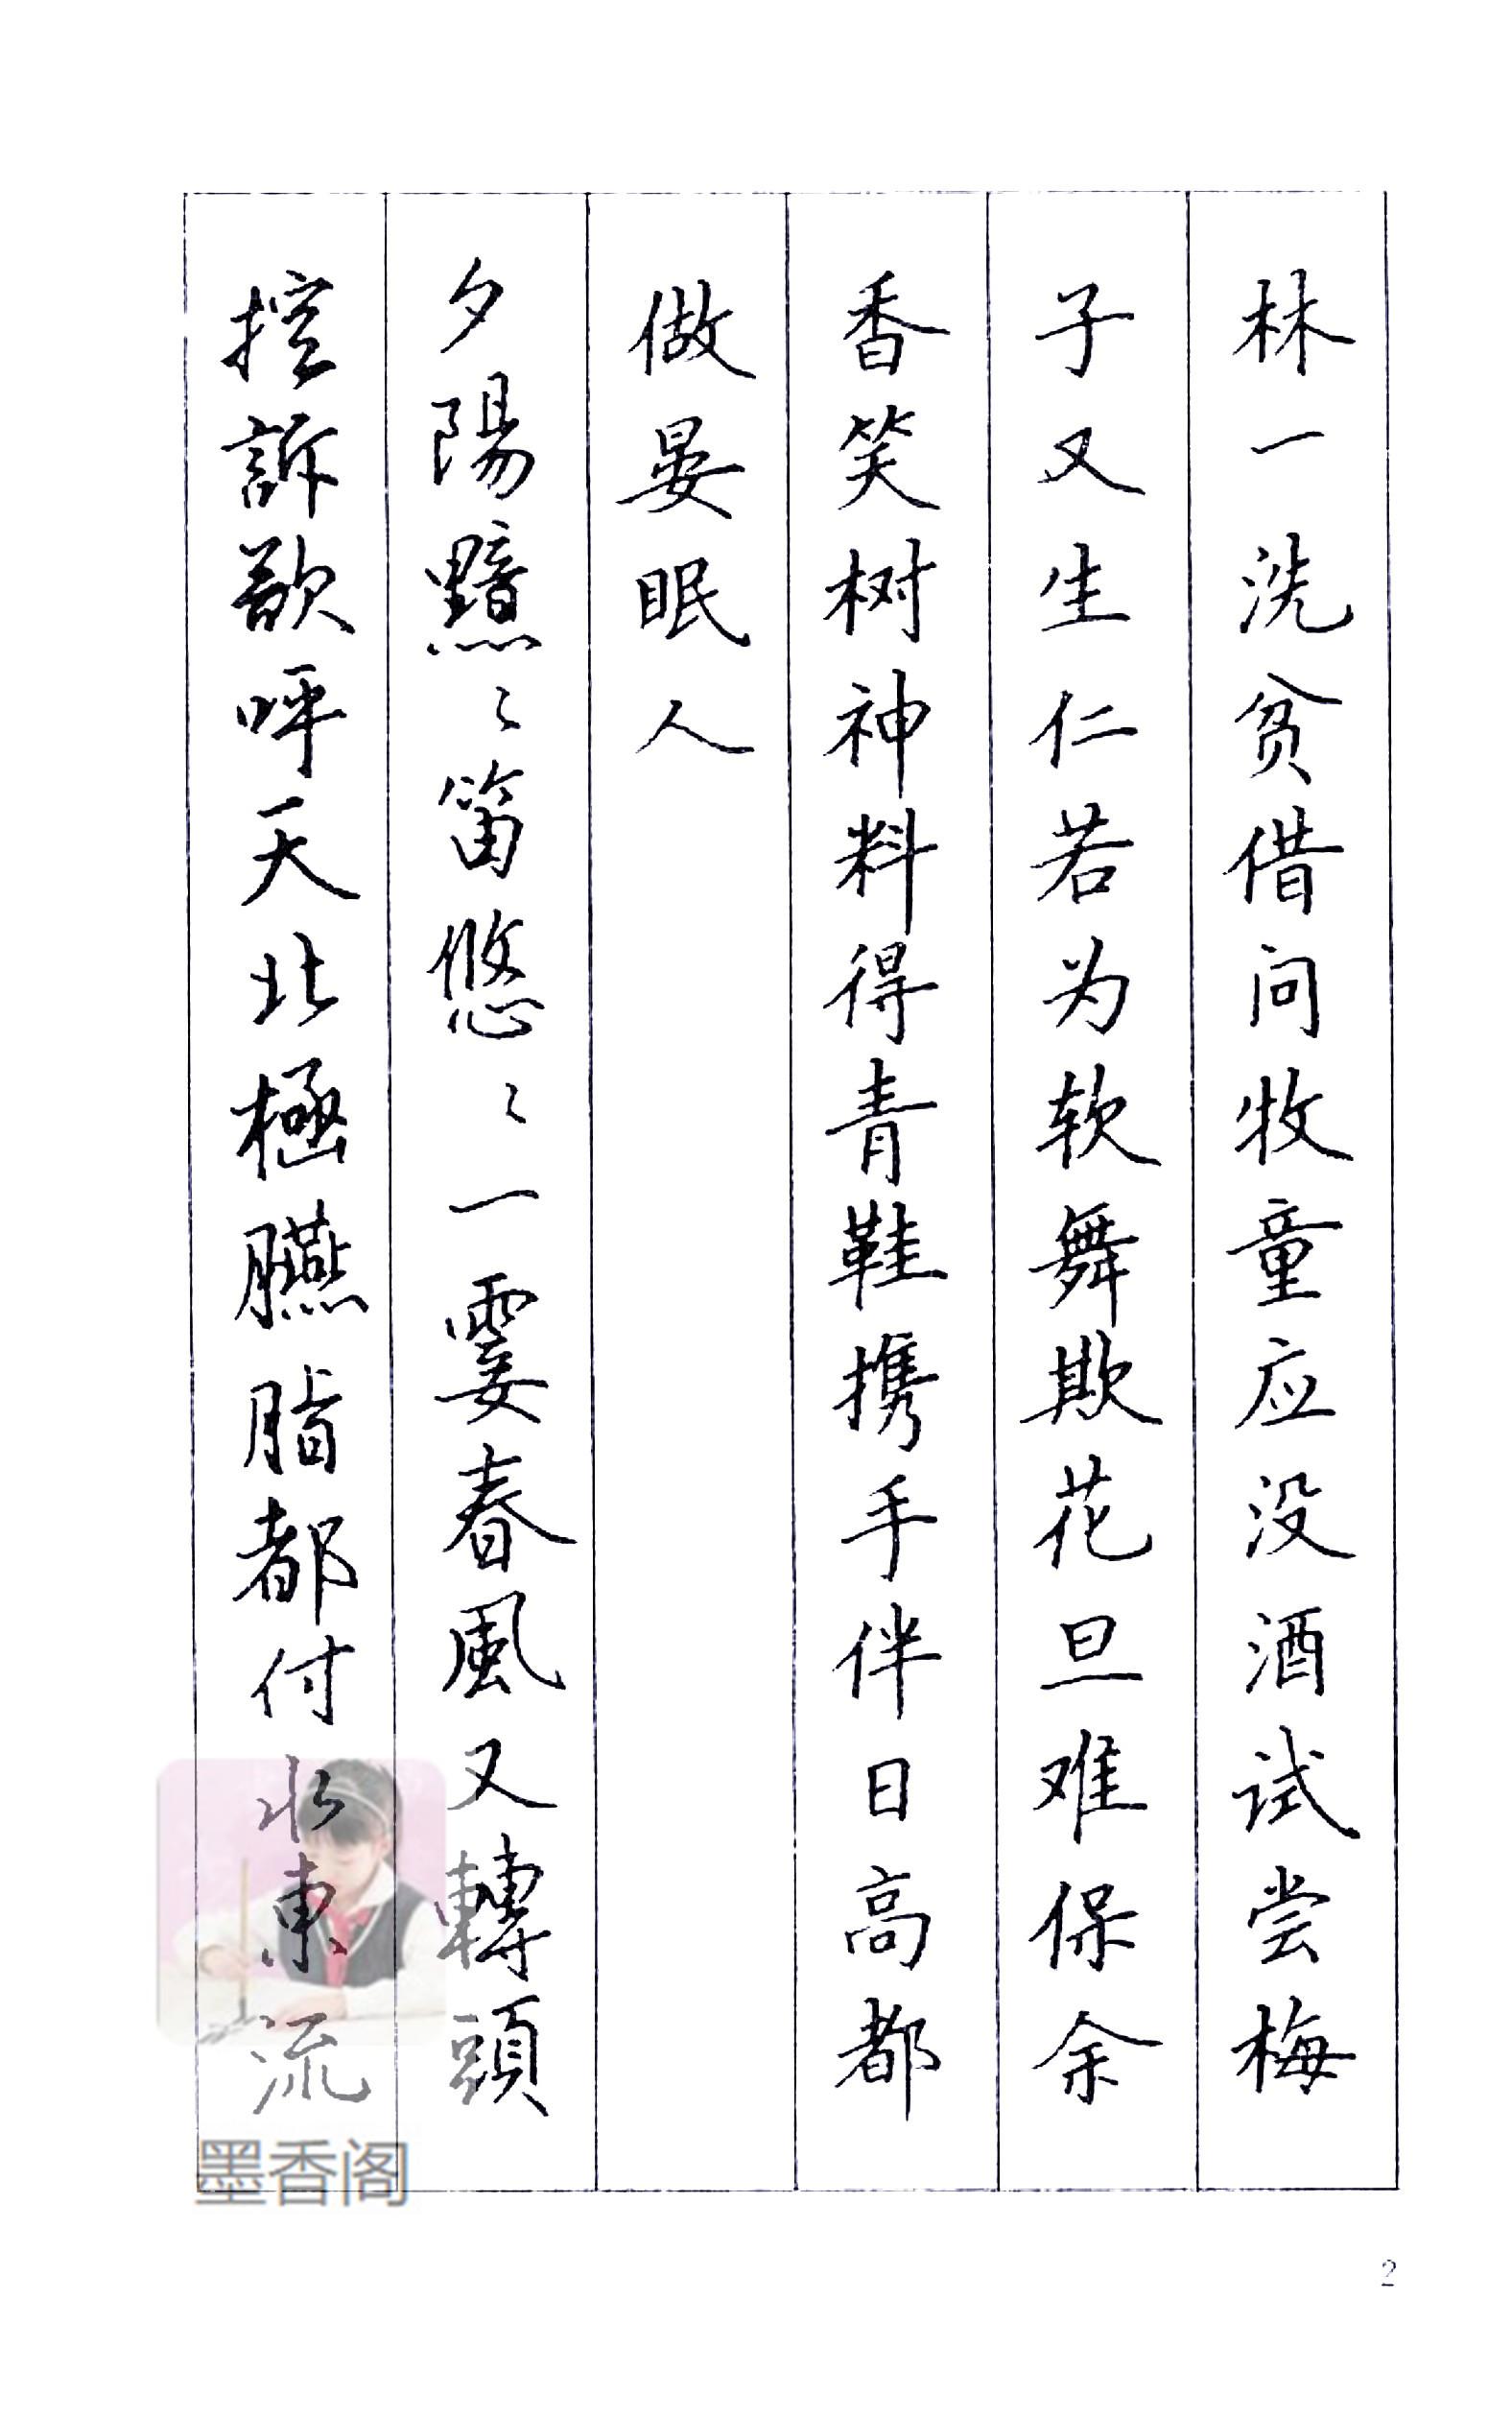 林一洗贫借问牧童应没酒试尝梅
子又生仁若为软舞欺花旦难保余
香笑树神料得青鞋携手伴日高都
做晏眠人
夕陽黯〻笛悠〻一霎春風又轉頭
控訴欲呼天北極臙脂都付水東流
墨香阁
2